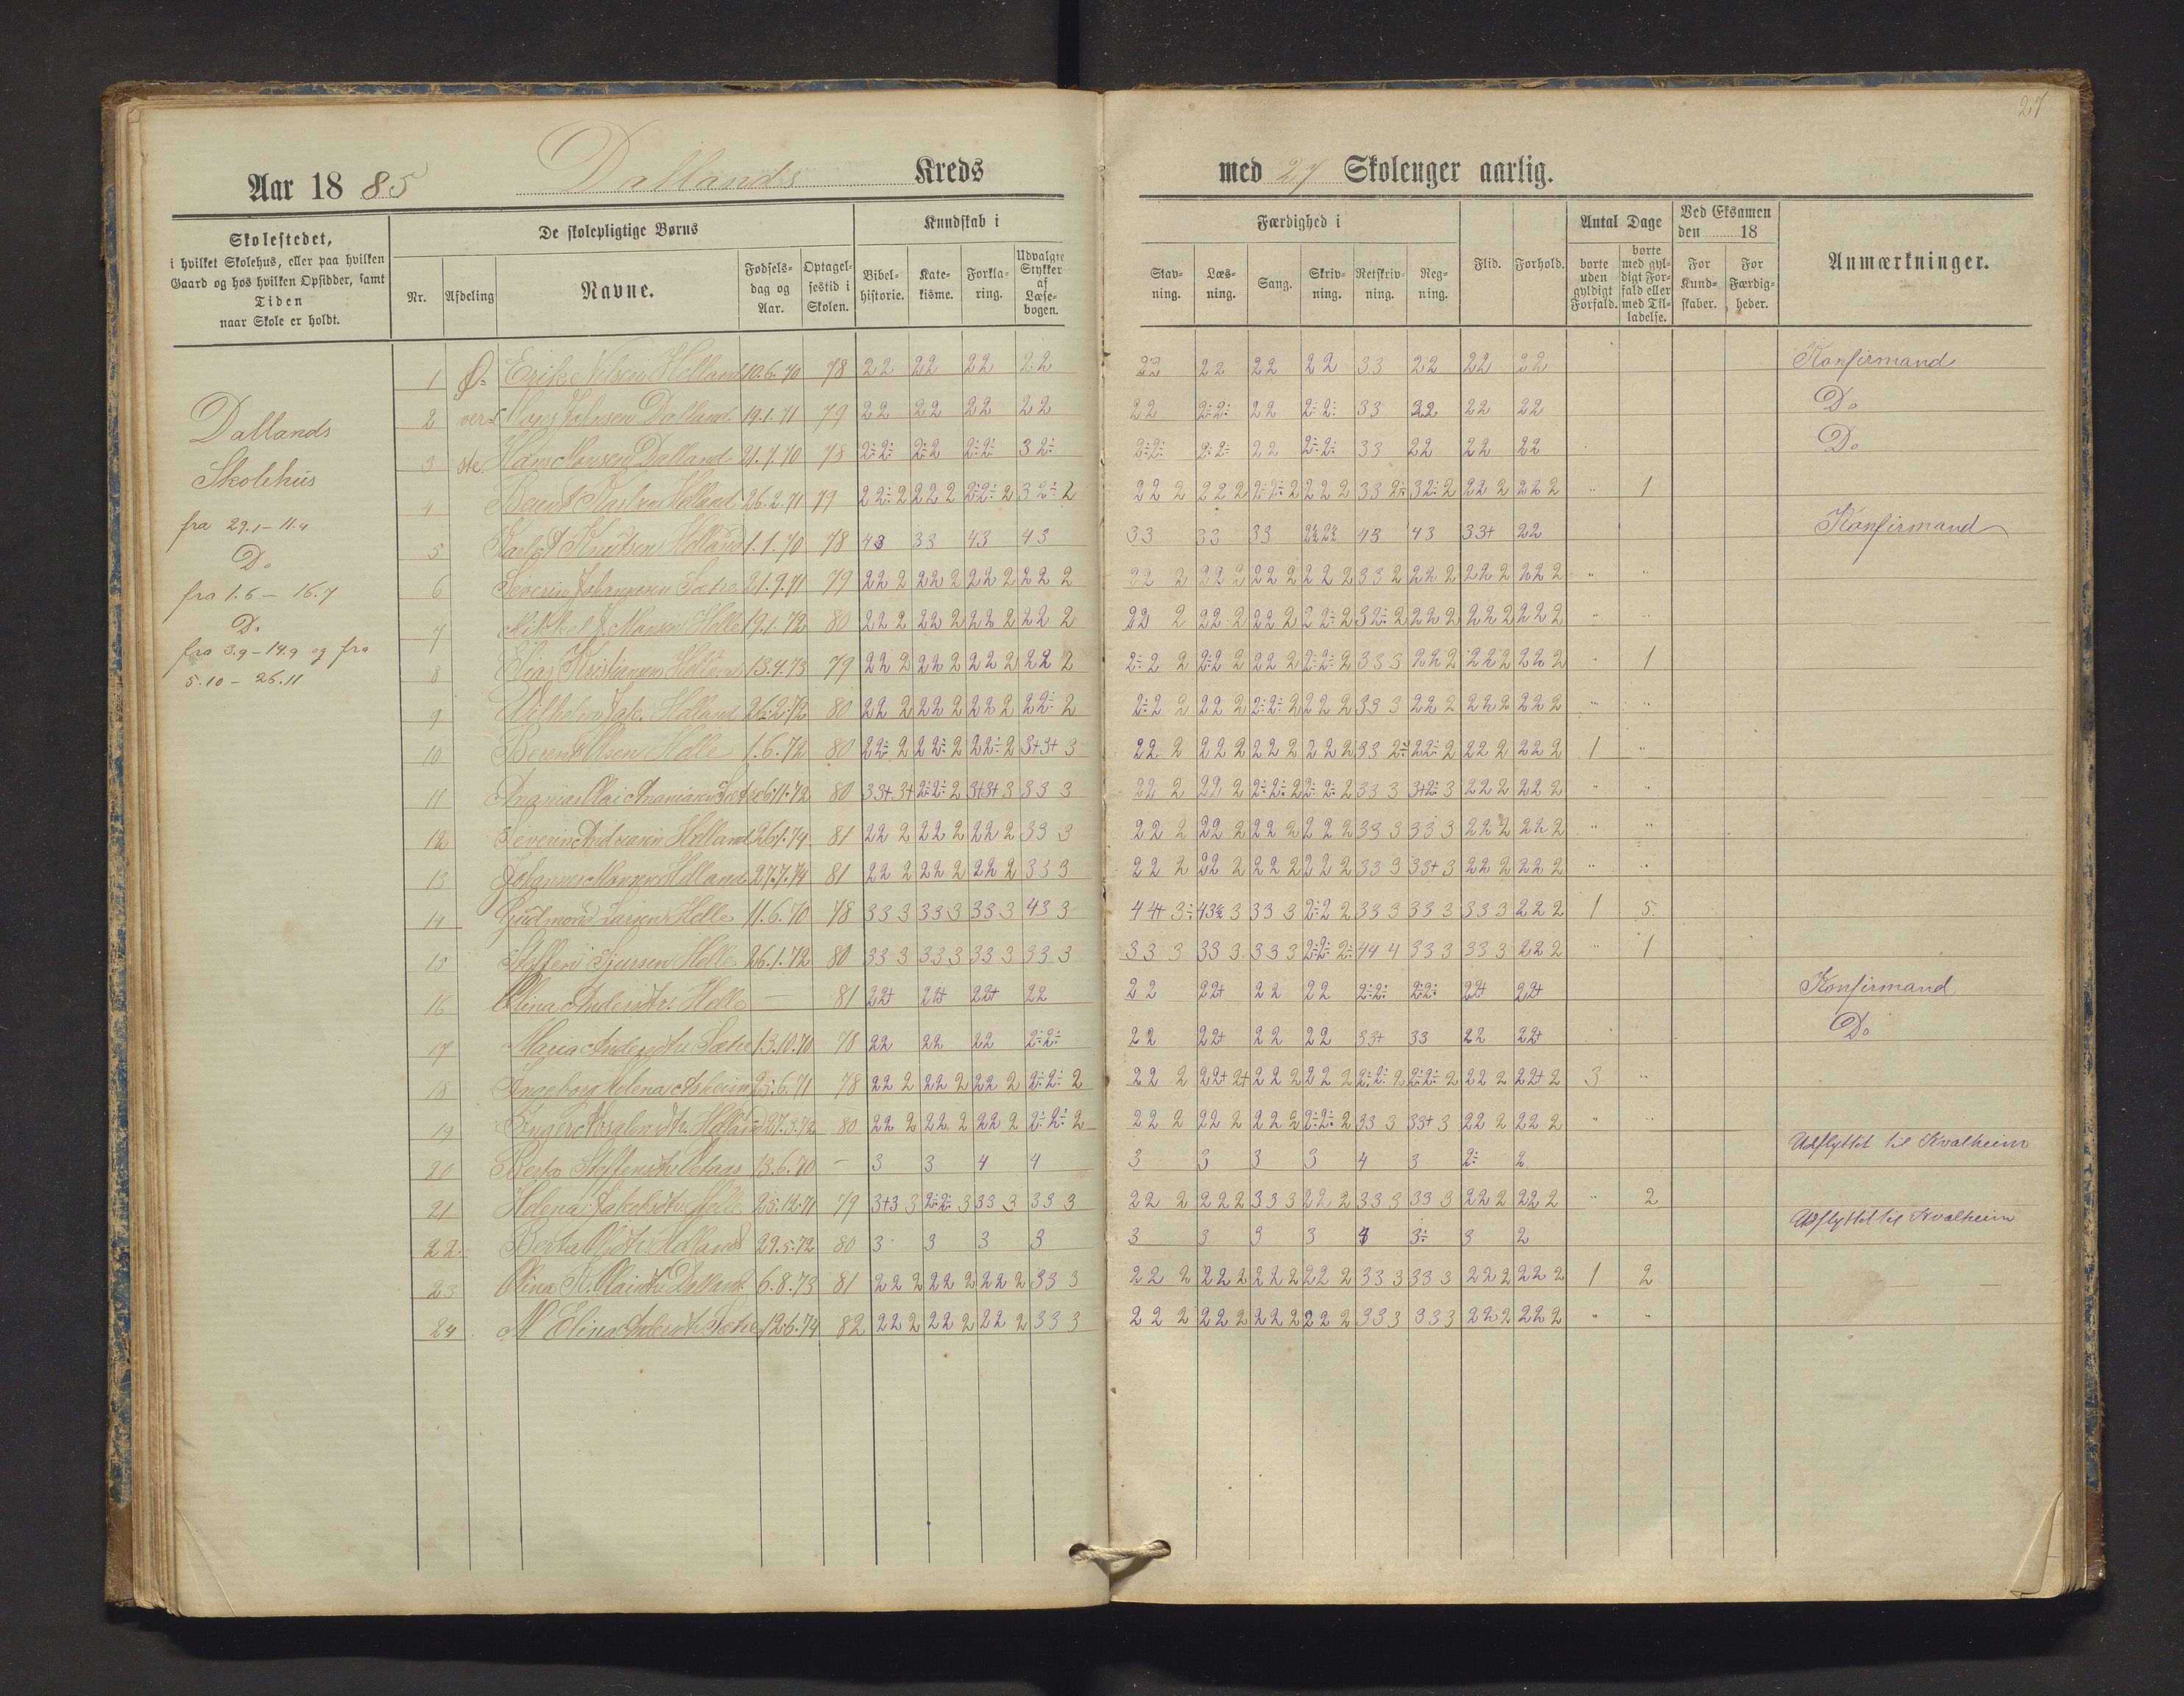 27
Aar 1885 Dallands Kreds med 27 Skoleuger aarlig.
Skolestedet, i hvilket Skolehus, eller paa hvilken Gaard og hos hvilken Opsidder, samt Tiden naar Skole er holdt.
De skolepligtige Børns
Nr. Afdeling Navne. Fødselsdag og Aar. Optagelsestid i Skolen.
Kundskab i
Bibelhistorie. Katekisme. Forklaring. Udvalgte Stykker af Læsebogen.
Færdighed i
Stavning. Læsning. Sang. Skrivning. Retskrivning. Regning.
Flid. Forhold.
Antal Dage
borte uden gyldigt Forfald. borte med gyldigt Forfald eller med Tilladelse.
Ved Eksamen den 18
For Kundskaber. For Færdigheder.
Anmærkninger.
Dallands
Skolehus
fra 29.1 – 11.4
Do
fra 1.6 – 16.7
Do
fra 3.9 – 14.9 og fra
5.10 – 26.11
1 Ø- Erik Nilsen Helland 10.6.70 78 22 22 22 22 22 22 22 22 33 22 22 22 Konfirmand
2 ver- Mons Johnsen Dalland 19.1.71 79 22 22 22 22 22 2÷2÷ 22 2÷2÷ 33 32 22 22 Do
3 ste Hans Monsen Dalland 21.7.70 78 2÷2÷ 2÷2 2÷2÷ 3 2÷ 2÷2÷ 2÷2÷ 22 2÷2÷ 33 22 22 22 Do
4 Helland 26.2.71 79 22÷2 222 2÷2÷2 32÷2 222 222 2÷2÷2 222 332÷ 32÷2 222 222 " 1
5 Knutsen Helland 1.1.70 78 43 33 43 43 33 33 33 43 43 33+ 22 Konfirmand
6 Severin Johannesen Sætre 21.9.71 79 222 222 222 222 222 222 222 222 332 222 222 222 " "
7 Mikkel Monsen Helle 19.1.72 80 222 222 222 222 222 222 222 22÷2 32÷2 222 222 222 " "
8 Elias Kristiansen Helland 13.4.73 79 222 222 222 222 2÷22 2÷22 222 2÷2÷2 333 222 222 222 " 1
9 Vilhelm Jak. Helland 26.2.72 80 222 222 222 22÷2 2÷22 222 2÷2÷2 222 333 222 222 222 " "
10 Berent Olsen Helle 1.6.72 80 22÷2 22÷2 22÷2 3+3+3 222 222 222 222 332÷ 22÷2 222 222 1 "
11 Ananias Olai Ananiasen Sætre 6.11.72 80 33+3+ 2÷2÷2 3+3+3 333 222 222 2÷2÷2 2÷2÷2 333 3+2÷3 222 222 " "
12 Severin Andreasen Helland 26.1.74 81 222 222 222 333 222 222 222 222 333 333 222 222 " "
13 Johannes Monsen Helland 27.7.74 81 222 222 222 333 222 222 222 222 333 33+3 222 222 " "
14 Gudmond Larsen Helle 11.6.70 78 333 333 333 433 44+3÷ 333 2÷22 333 333 333 222 1 5
15 Steffen Sjursen Helle 26.1.72 80 333 333 333 333 333 333 333 2÷2÷2÷ 444 333 333 222 " 1
16 Olina Andersdtr. Helle — 81 22+ 22+ 22+ 22 22 22+ 22 22 2÷2÷ 2÷2÷ 22+ 22+ Konfirmand
17 Maria Andersdtr Sætre 13.10.70 78 22 22 22 2÷2÷ 22 22+ 22 22 33+ 33 22 22+ Do
18 Ingeborg Helena Askeim 25.6.71 78 222 222 222 2÷2÷2 222 22+2+ 222 222 2÷2÷2 2÷2÷2 222 22+2 3 "
19 Helland 27.3.72 80 222 222 222 2÷2÷2 222 222 222 2÷2÷2 333 33+3 222 222 " "
20 Berta Steffensdtr 13.6.70 – 3 3 4 4 3 3 3 3 4 3 2÷ 2 Udflyttet til Kvalheim
21 Helena Jakobsdtr. Helle 25.12.71 79 3+33 2÷2÷3 333 333 222 222 333 222 333 333 222 222 " 2
22. Berta Olsdtr Helland 29.5.72 80 3 3 3 3 3 3 3 3 3÷ 3 2 Udflyttet til Kvalheim
23 Olina K. Olaisdtr Dalland 6.8.73 81 222 222 222 333 222 222 222 222 333 333 222 222 1 2
24 M Elina Andersdtr Sætre 12.6.74 82 222 222 222 333 222 222 222 222 333 333 222 222 " "